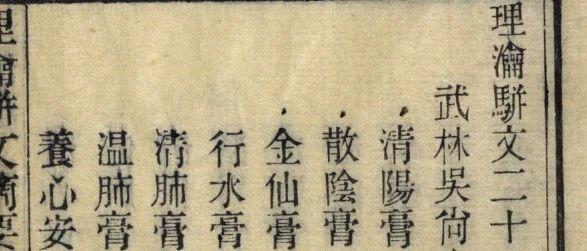 理瀹駢文二十
武林吳尙
清陽膏
散陰膏
金仙膏
行水膏
清肺膏
温肺膏
養心安
理瀹駢文摘要